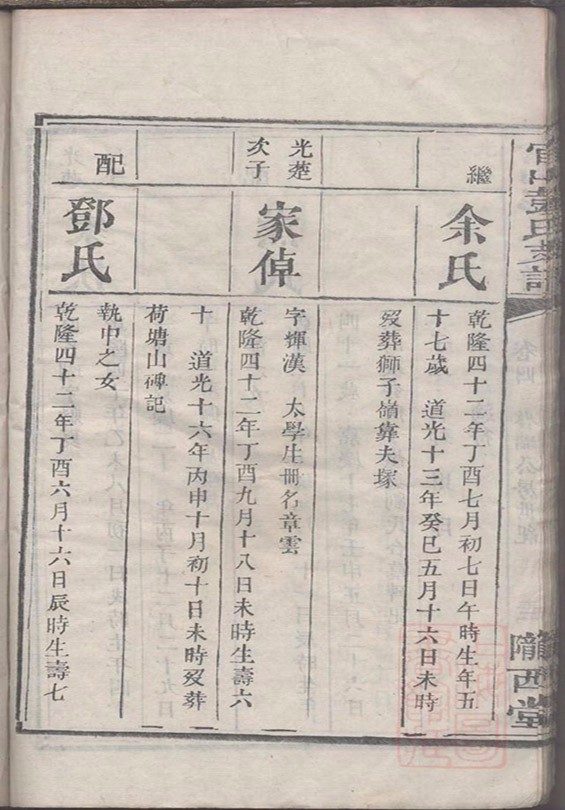 繼
余氏
乾隆四十二年丁酉七月初七日午時生年五
十七歲 道光十三年癸巳五月十六日未時
歿葬獅子嶺靠夫塚
光楚
次子
家倬
字揮漢 太學生冊名章雲
乾隆四十二年丁酉九月十八日未時生壽六
十 道光十六年丙申十月初十日未時歿葬
荷塘山碑記
配
鄧氏
執中之女
乾隆四十二年丁酉六月十六日辰時生壽七
彭氏支譜
卷四
隴西堂